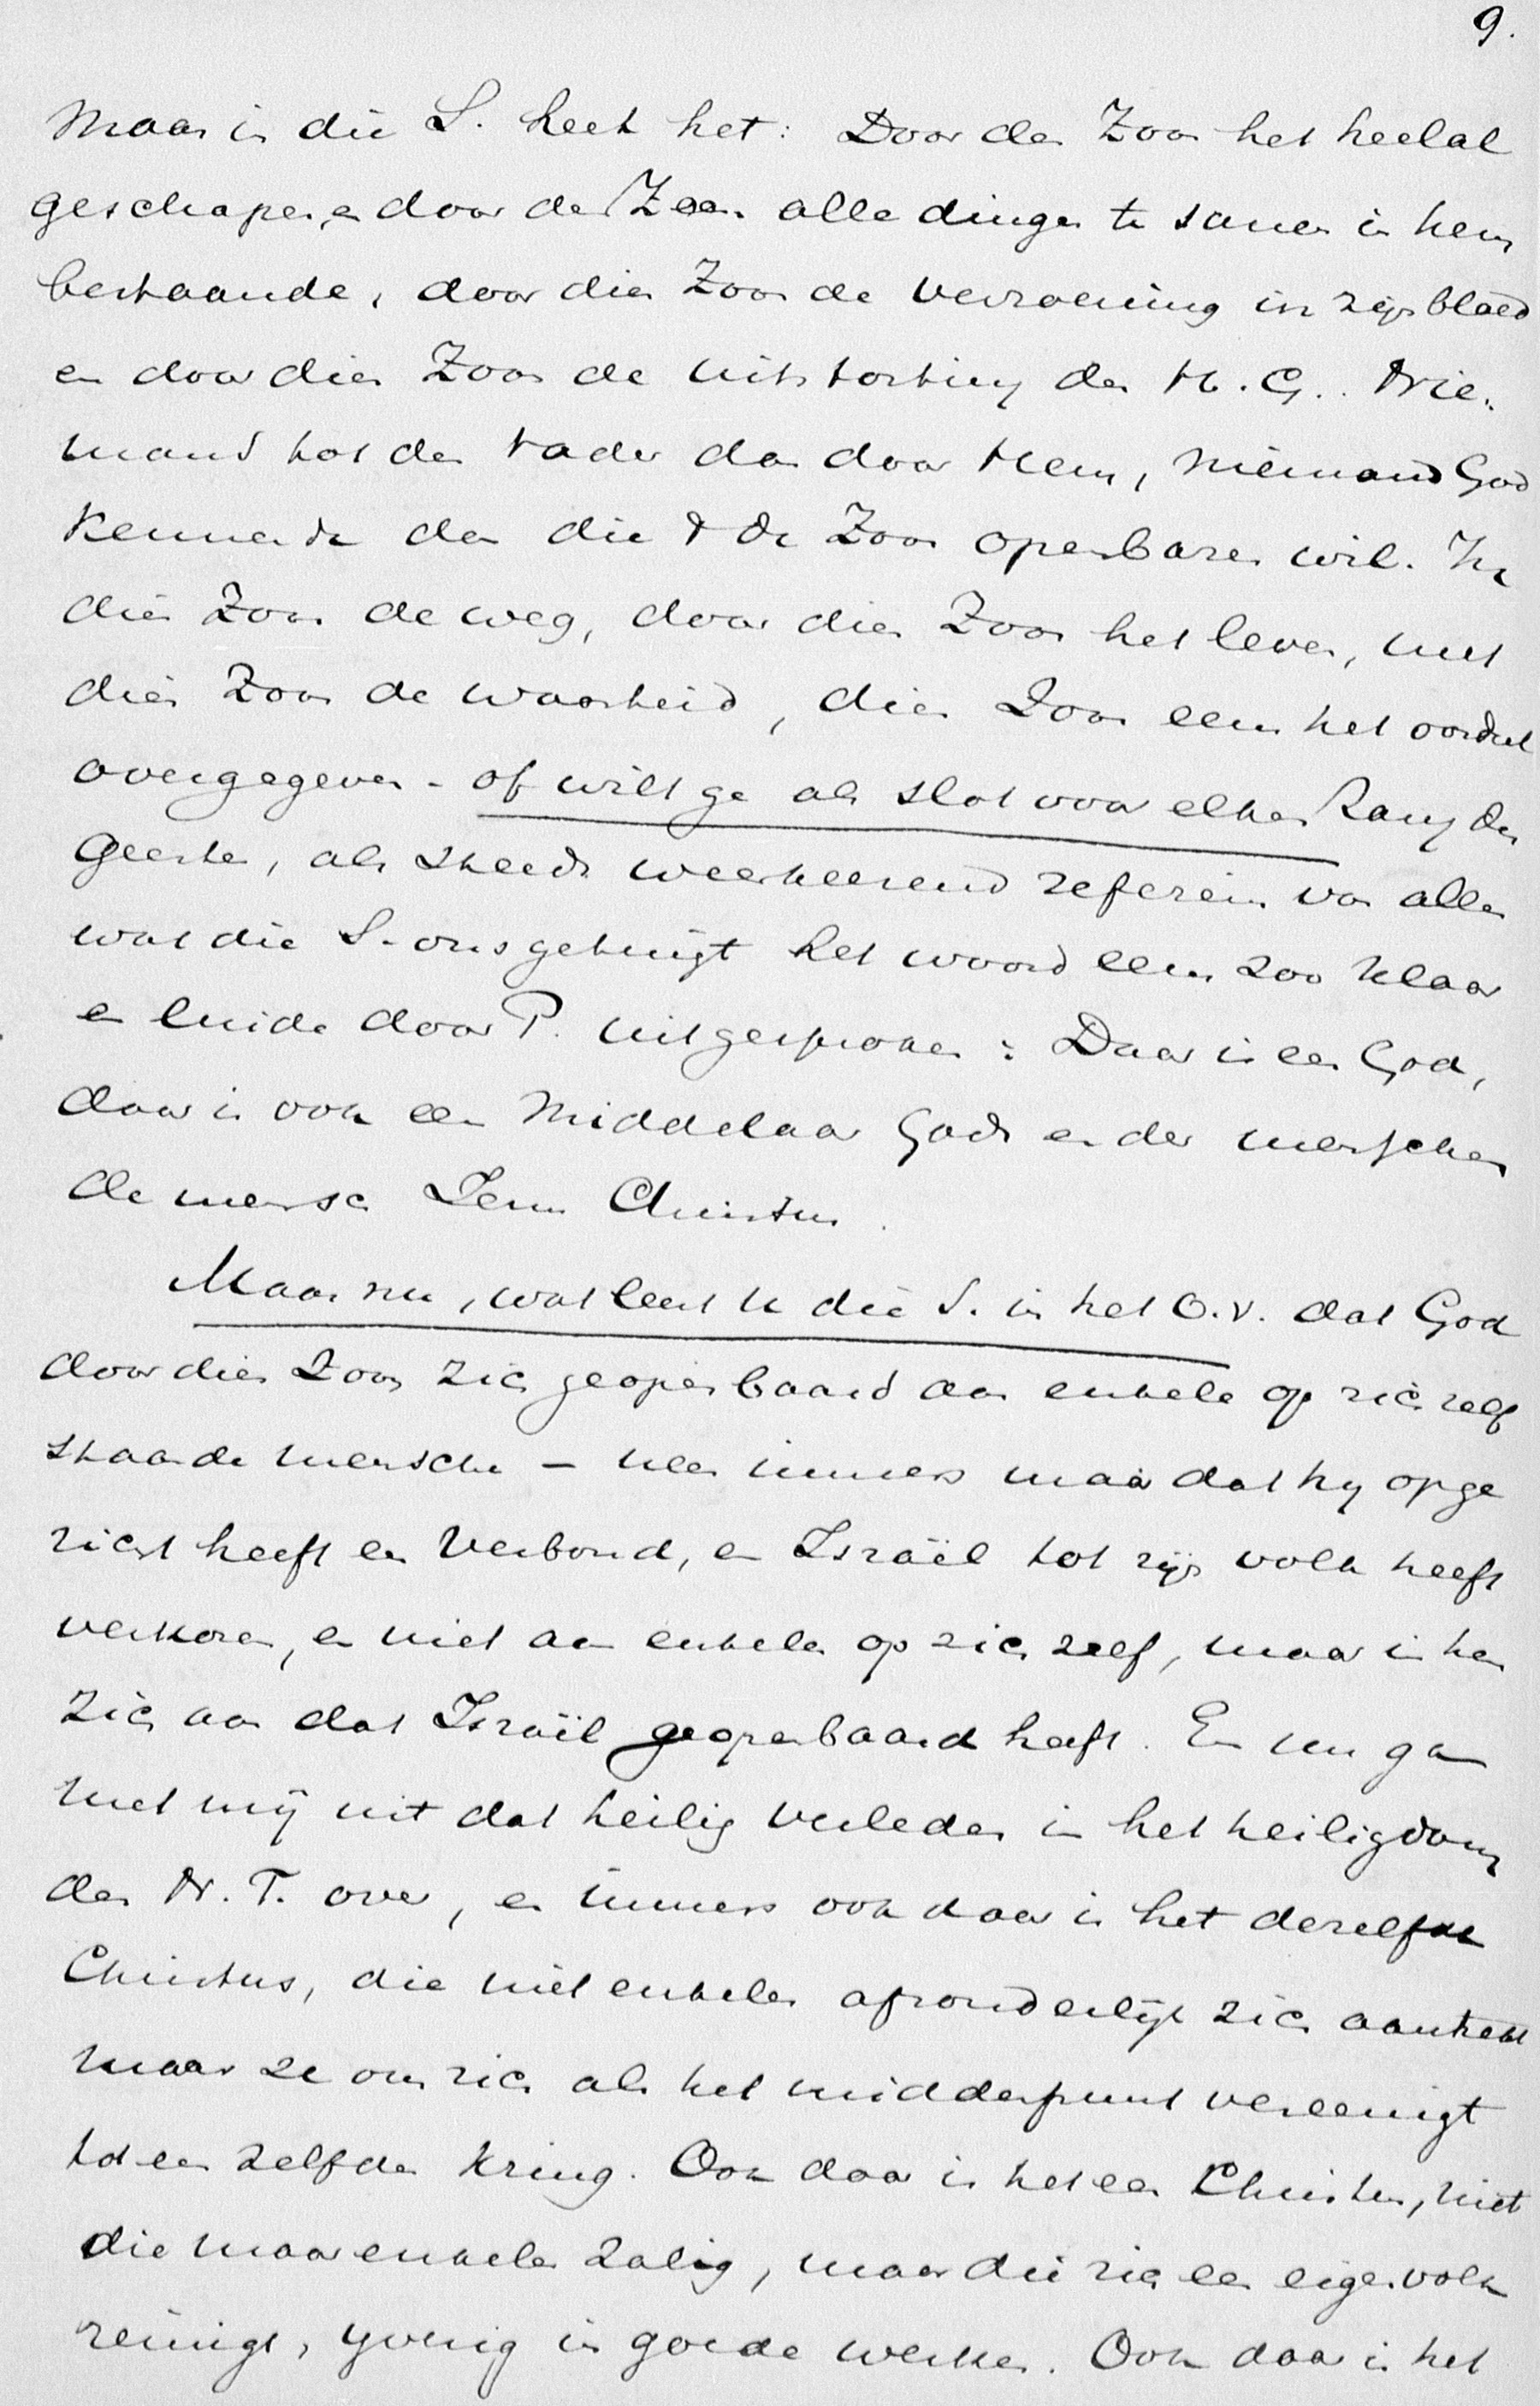 9.
Maar in die S. heet het: Door den Zoon het heelal
geschapen, en door den Zoon alle dingen te samen in hem
bestaande, door dien Zoon de verzoening in zijn bloed
en door dien Zoon de uitstorting den H. G.. Nie-
mand tot den Vader dan door Hem, niemand God
kennende dan die de Zoon openbaren wil. In
dien Zoon de weg, door dien Zoon het leven, met
dien Zoon de waarheid, dien Zoon eens het oordeel
overgegeven - of wilt ge als slot voor elken Rang der
Geesten, als steeds weerkeerend referein van alles
wat die S. ons getuigt het woord eens zoo klaar
en luide door P. uitgesproken: Daar is een God,
daar is ook een Middelaar Gods en der menschen
de mensch Jezus Christus.
Maar nu, wat leert u die S. in het O.V. dat God
door dien Zoon zich geopenbaard aan enkele op zich zelf
staande menschen - neen immers maar dat hij opge
richt heeft een Verbond, en Israël tot zijn volk heeft
verkoren, en niet aan enkelen op zich zelf, maar in hen
zich aan dat Israël geopenbaard heeft. En nu ga
met mij uit dat heilig verleden in het heiligdom
des N. T. over, en immers ook daar is het dezelfde
Christus, die niet enkelen afzonderlijk zich aantrekt
maar ze om zich als het middenpunt vereenigt
tot een zelfden kring. Ook daar is het een Christus, niet
die maar enkelen zalig, maar die zich een eigen volk
reinigt, ijverig in goede werken. Ook daar is het